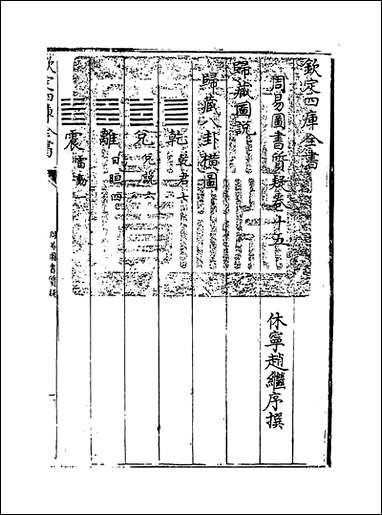 欽定四庫全書
周易圖書質疑卷十五
休寧趙繼序撰
歸藏圖說
歸藏八卦橫圖
乾 乾君七
兌 兌說六
離 日晅四
震 雷動
欽定四庫全書
周易圖書質疑